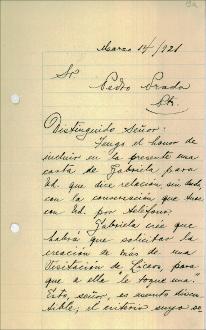 Marzo 14/921
Sr
Pedro Prado
Distinguido Señor:
Tengo el honor de
incluir en la presente una
carta de Gabriela para
Ud. que dice relacion sin duda,
con la conversación que tuve
con Ud. por teléfono.
Gabriela cree que
habrá que solicitar la
creación de mas de una
Visitación de Liceos, para
que a ella "le toque una".
Esto, señor, es asunto discu-
sible; el criterio suyo se